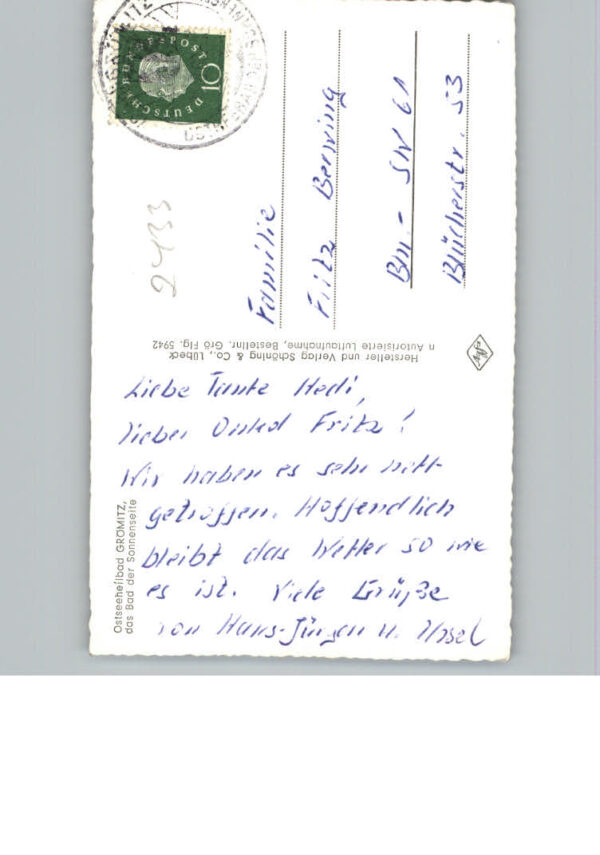 Liebe Tante Hedi,
lieber Onkel Fritz!
Wir haben es sehr nett
getroffen. Hoffendlich
bleibt das Wetter so wie
es ist. Viele Grüße
von Hans-Jürgen u. Ursel
Familie
Fritz Berwing
Bln.- SW 61
Blücherstr. 53
Ostseeheilbad GRÖMITZ,
das Bad der Sonnenseite
Hersteller und Verlag Schöning & Co., Lübeck
n Autorisierte Luftaufnahme, Bestellnr. Grö Flg. 5942
2433
DEUTSCHE BUNDESPOST
10